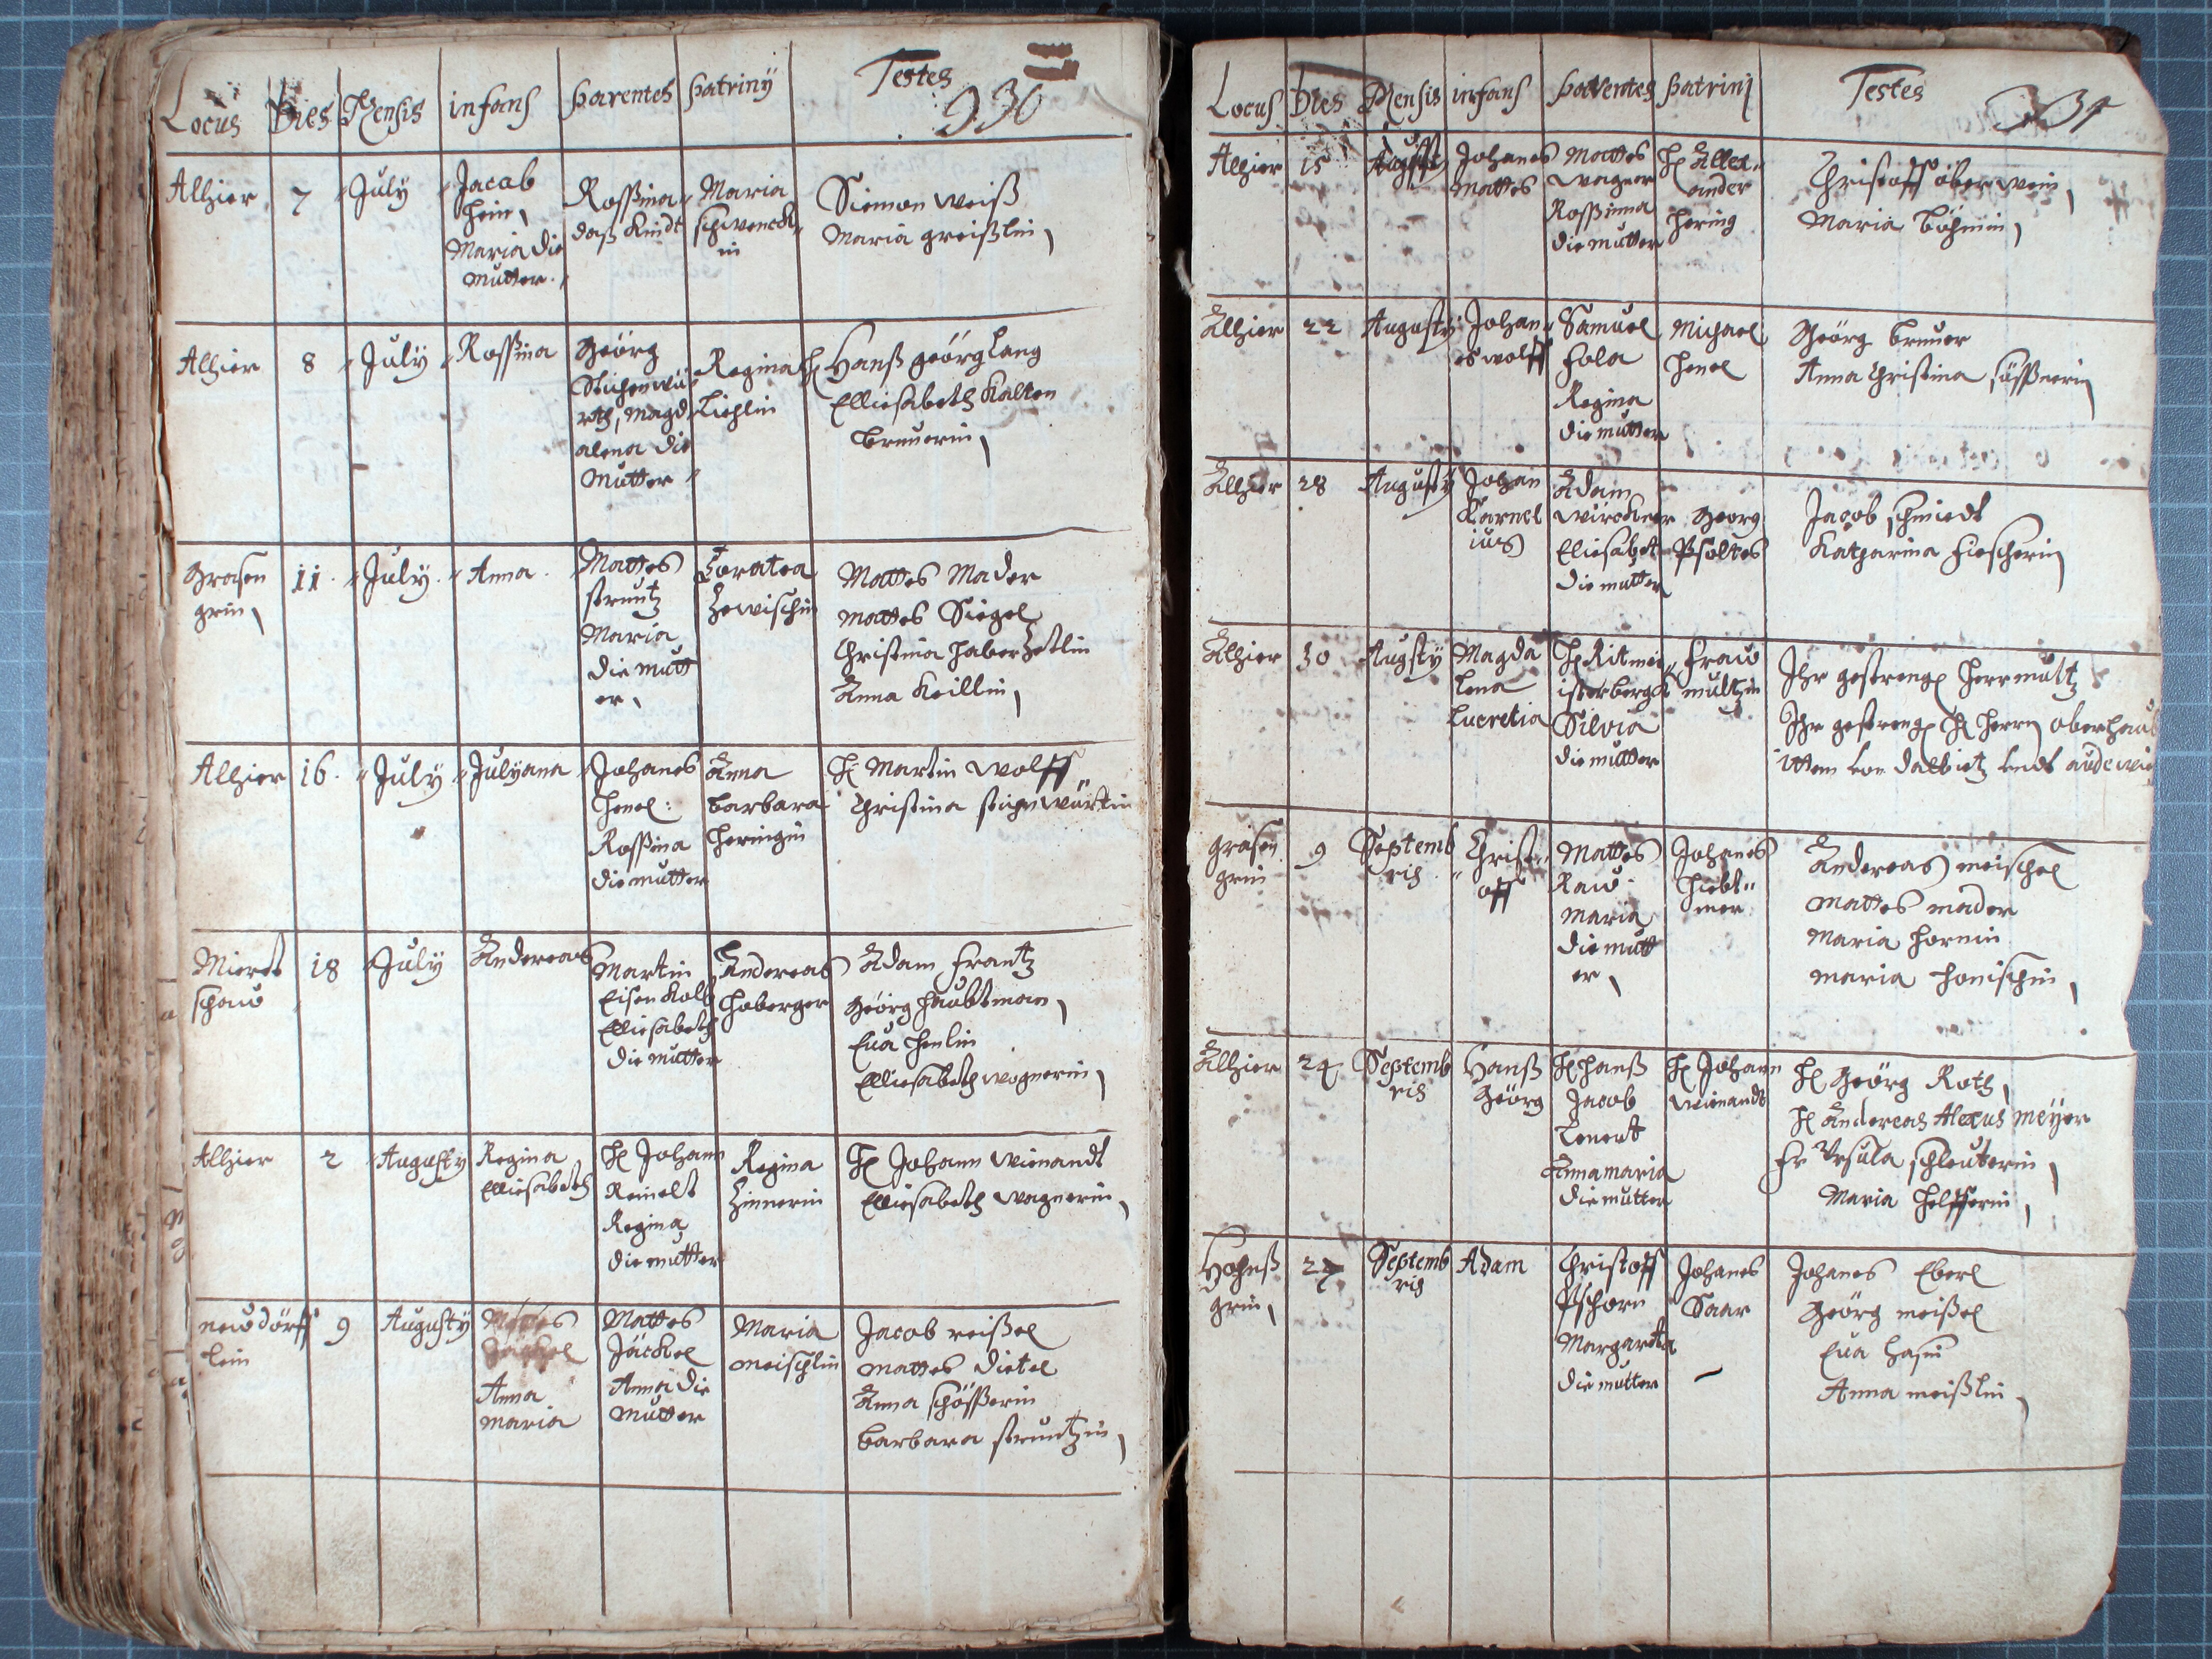 Locus Dies Mensis infans parentes patriny Testes
930
Alhier 7 July Jacob
Hein
Maria die
Mutter
Rossina
dass Kindt
Maria
schwenck
in
Siemon weiß
Maria greißlin
Alhier 8 July Rossina
Geörg
Stichenwü
rth, Magd
alena die
Mutter
Regina
Lichlin
H Hanß geörg Lang
Elliesabeth Kalten
breuerin
Grasen
grin
11 July Anna
Mattes
struntz
Maria
die mutt
er
Toratea
Mattes Mader
Mattes Siegel
Christina haberzetlin
Anna Keillin
Alhier 16 July Julyana
Johanes
Henel
Rossina
die mutter
Anna
barbara
Heringin
H Martin Wolff
Christina stichwürtin
Mieret
schaw
18 July Andereas
Martin
Eisenkolb
Elliesabeth
die mutter
Andereas
Haberger
Adam Frantz
Geörg haubtman
Eua Henlin
Elliesabeth wagnerin
Alhier 2 Augusty Regina
Elliesabeth
H Johann
Reinelt
Regina
die mutter
Regina
Zinnerin
H Johann Wienandt
Elliesabeth Wagnerin
newdörff
lein
9 Augusty
Mattes
Jäckel
Anna
Maria
Mattes
Jäckel
Anna die
Mutter
Maria
meischlin
Jacob reißel
Mattes Dietel
Anna schösserin
barbara struntzin
Locus Dies Mensis infans parentes patrinj Testes
Alhier 15 Augsty Johanes
Mattes
Mattes
Wagner
Rossinna
die mutter
H Allex
ander
Hering
Christoff oberwein
Maria Böhmin
Alhier 22 Augusty Johan
es wolff
Samuel
Fola
Regina
die mutter
Michael
Henel
Geörg breuer
Anna Christina
Alhier 28 Augusty Johan
Karnel
ius
Adam
Wirckner
Eliesabet
die mutter
Georg
Psoltes
Jacob schmiedt
Katharina Fiescherin
Alhier 30 Augsty Magda
lena
Lucretia
H Ritmei
ster berg
Silvia
die mutter
Fraw
multzin
Ihr gestreng Herr multz
Ihr gestreng H Herrn oberhaub
ittem von Dalbietz
grasen
grin
9 Septemb
ris
Christ
off
Mattes
Raw
Maria
die mutt
er
Johanes
Hiebl
mer
Andereas meischel
Mattes mader
Maria Hornin
Maria Honischin
Alhier 24 Septemb
ris
Hanß
Geörg
H hanß
Jacob
Lenert
Anna maria
die mutter
H Johann
Wienandt
H Geörg Roth
H Andereas Alexus Meyer
Fr Vrsula schleuterin
Maria Helfferin
Hohnß
grin
27 Septemb
ris
Adam
Christoff
Pschorn
Margareta
die mutter
Johanes
Saar
Johanes Eberl
Geörg meißel
Eua Hasin
Anna meißlin